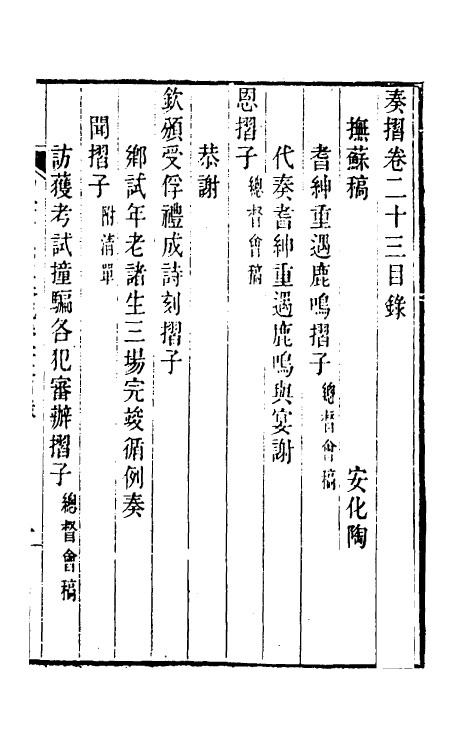 奏摺卷二十三目錄
撫蘇稿 安化陶
耆紳重遇鹿鳴摺子 總督會稿
代奏耆紳重遇鹿鳴與宴謝
恩摺子 總督會稿
恭謝
欽頒受俘禮成詩刻摺子
鄉試年老諸生三場完竣循例奏
聞摺子 附清單
訪獲考試撞騙各犯審辦摺子 總督會稿